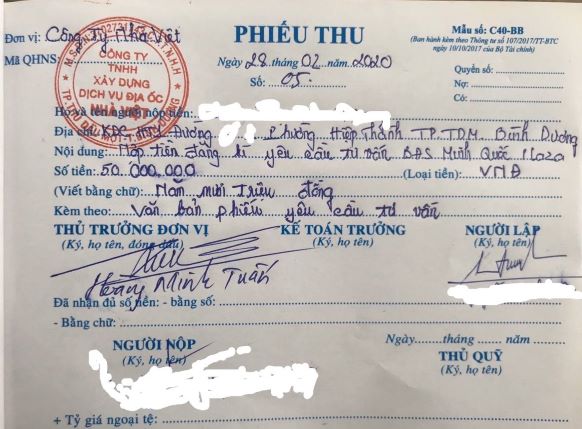 Đơn vị: Công Ty Nhà Việt
Mã QHNS:
CÔNG TY
TNHH
XÂY DỰNG
DỊCH VỤ ĐỊA ỐC
NHÀ VIỆT
PHIẾU THU
Ngày 28 tháng 02 năm 2020
Số: 05
Mẫu số: C40-BB
(Ban hành kèm theo Thông tư số 107/2017/TT-BTC
ngày 10/10/2017 của Bộ Tài chính)
Quyển số:
Nợ:
Có:
Họ và tên người nộp tiền:
Địa chỉ: KDC Dương Phường Hiệp Thành TP.TDM. Bình Dương
Nội dung: Nộp tiền đăng kí yêu cầu tư vấn BĐS Minh Quốc Plaza
Số tiền: 50.000.000 (Loại tiền): VNĐ
(Viết bằng chữ): Năm mươi triệu đồng
Kèm theo: Văn bản phiếu yêu cầu tư vấn
THỦ TRƯỞNG ĐƠN VỊ KẾ TOÁN TRƯỞNG NGƯỜI LẬP
(Ký, họ tên, đóng dấu) (Ký, họ tên) (Ký, họ tên)
Hoàng Minh Tuấn
Đã nhận đủ số tiền: - bằng số:
- Bằng chữ:
Ngày tháng năm
NGƯỜI NỘP THỦ QUỸ
(Ký, họ tên) (Ký, họ tên)
+ Tỷ giá ngoại tệ: